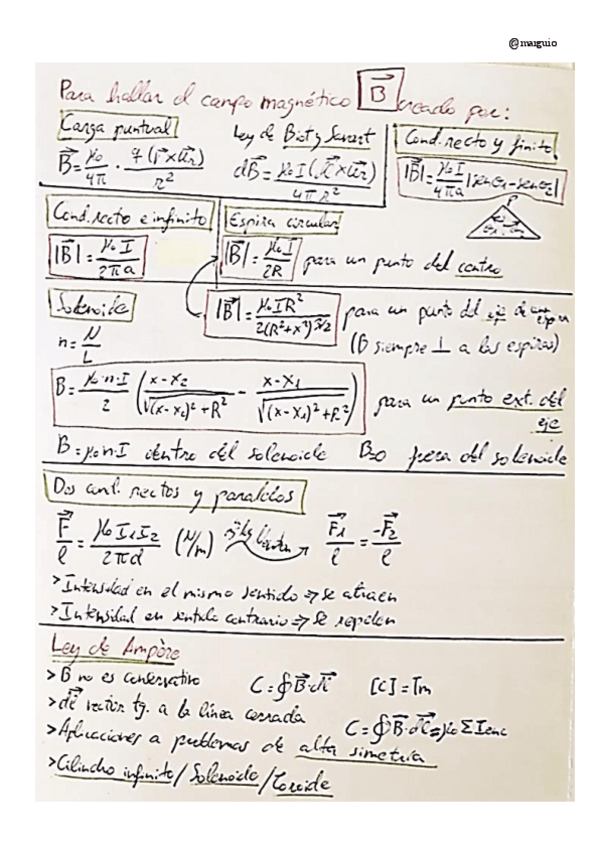 @marguio
Para hallar el campo magnético B⃗ creado por:
Carga puntual
Ley de Biot y Savart
Cond. recto y finito
B⃗ = μ₀/4π · q(v⃗×u⃗r)/r²
dB⃗ = μ₀I(dl⃗×u⃗r)/4πr²
|B⃗| = μ₀I/4πa |senα₁-senα₂|
P
Cond. recto e infinito
Espira circular
|B⃗| = μ₀I/2πa
|B⃗| = μ₀I/2R para un punto del centro
Solenoide
|B⃗| = μ₀IR²/2(R²+x²)^3/2 para un punto del eje de una espira
n = N/L
(B siempre ⊥ a las espiras)
B = μ₀·n·I/2 (x-x₂/√((x-x₂)²+R²) - x-x₁/√((x-x₁)²+R²)) para un punto ext. del eje
B = μ₀nI dentro del solenoide B=0 fuera del solenoide
Dos cond. rectos y paralelos
F⃗/l = μ₀I₁I₂/2πd (N/m) F⃗₁/l = -F⃗₂/l
>Intensidad en el mismo sentido ⇒ se atraen
>Intensidad en sentido contrario ⇒ se repelen
Ley de Ampère
>B no es conservativo C=∮B⃗·dl⃗ [C]=Tm
>dl⃗ vector tg. a la línea cerrada
C=∮B⃗·dl⃗=μ₀ΣIenc
>Aplicaciones a problemas de alta simetría
>Cilindro infinito/Solenoide/Toroide